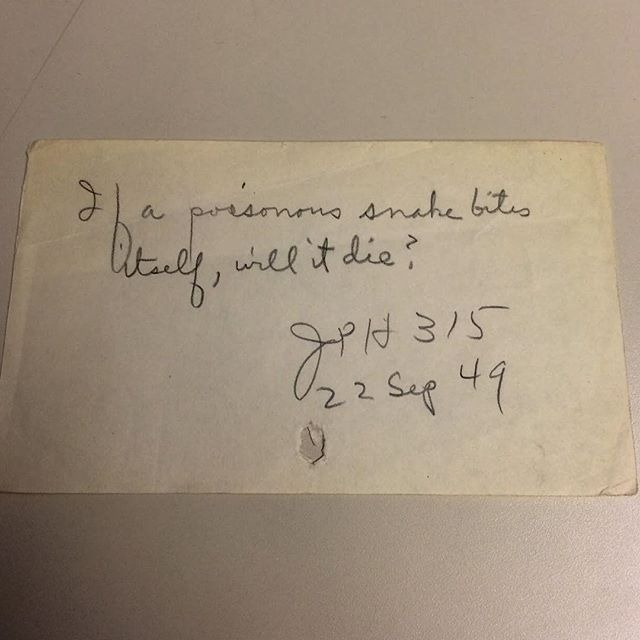 If a poisonous snake bites
itself, will it die?
JPH 315
22 Sep 49